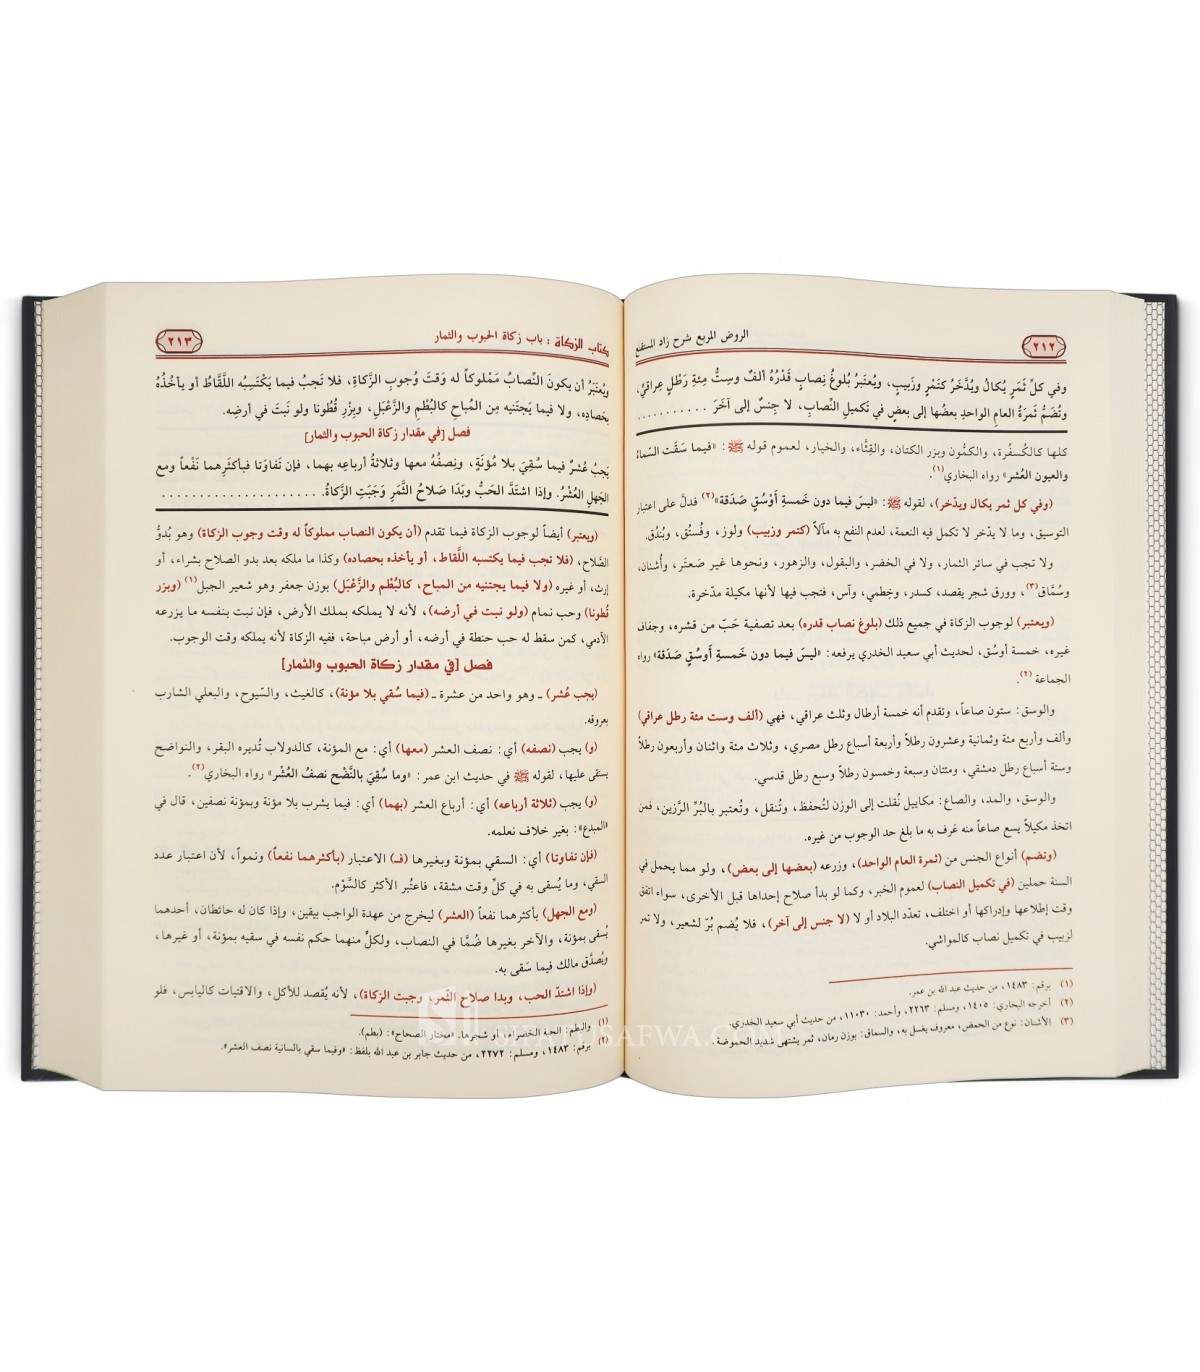 ٢١٢
الروض المربع شرح زاد المستقنع
وفي كلِّ ثَمَرٍ يُكالُ ويُدَّخَرُ كتَمْرٍ وزَبيبٍ، ويُعتَبرُ بُلوغُ نِصابٍ قَدْرُهُ ألفٌ وسِتُّ مِئةِ رَطْلٍ عِراقيٍّ،
وتُضَمُّ ثَمرَةُ العامِ الواحدِ بعضُها إلى بعضٍ في تكميلِ النِّصابِ، لا جِنسٌ إلى آخَرَ ...........
كلها كالكُسفُرة، والكمُّون وبزر الكتان، والقِثَّاء، والخيار، لعموم قوله ﷺ: «فيما سَقَت السّماءُ
والعيون العُشر» رواه البخاري(١).
(وفي كل ثمر يكال ويدّخر)، لقوله ﷺ: «ليسَ فيما دون خَمسةِ أَوْسُقٍ صَدَقة»(٢) فدلَّ على اعتبار
التوسيق، وما لا يدّخر لا تكمل فيه النعمة، لعدم النفع به مآلاً (كتمر وزبيب) ولوز، وفُستُق، وبُندُق.
ولا تجب في سائر الثمار، ولا في الخضر، والبقول، والزهور، ونحوها غير صَعتَر، وأُشنان،
وسُمَّاق(٣)، وورق شجر يقصد، كسدر، وخِطمي، وآس، فتجب فيها لأنها مكيلة مدّخرة.
(ويعتبر) لوجوب الزكاة في جميع ذلك (بلوغ نصاب قدره) بعد تصفية حَبّ من قشره، وجفاف
غيره، خمسة أوسُق، لحديث أبي سعيد الخدري يرفعه: «ليسَ فيما دون خَمسةِ أَوسُقٍ صَدَقة» رواه
الجماعة(٢).
والوسق: ستون صاعاً، وتقدم أنه خمسة أرطال وثلث عراقي، فهي (ألف وست مئة رطل عراقي)
وألف وأربع مئة وثمانية وعشرون رطلاً وأربعة أسباع رطل مصري، وثلاث مئة واثنان وأربعون رطلاً
وستة أسباع رطل دمشقي، ومئتان وسبعة وخمسون رطلاً وسبع رطل قدسي.
والوسق، والمد، والصاع: مكاييل نُقلت إلى الوزن لتُحفظ، وتُنقل، وتُعتبر بالبُرِّ الرَّزين، فمن
اتخذ مكيلاً يسع صاعاً منه عَرف به ما بلغ حد الوجوب من غيره.
(وتضم) أنواع الجنس من (ثمرة العام الواحد)، وزرعه (بعضها إلى بعض)، ولو مما يحمل في
السنة حملين (في تكميل النصاب) لعموم الخبر، وكما لو بدأ صلاح إحداها قبل الأخرى، سواء اتفق
وقت إطلاعها وإدراكها أو اختلف، تعدّد البلاد أو لا (لا جنس إلى آخر)، فلا يُضم بُرّ لشعير، ولا تمر
لزبيب في تكميل نصاب كالمواشي.
(١) برقم: ١٤٨٣، من حديث عبد الله بن عمر.
(٢) أخرجه البخاري: ١٤٠٥، ومسلم: ٢٢٦٣، وأحمد: ١١٠٣٠، من حديث أبي سعيد الخدري.
(٣) الأشنان: نوع من الحمض، معروف يغسل به، والسماق: بوزن رمان، ثمر يشتهى شديد الحموضة.
كتاب الزكاة : باب زكاة الحبوب والثمار
٢١٣
ويُعتَبَرُ أن يكونَ النِّصابُ مَمْلوكاً له وَقتَ وُجوبِ الزَّكاةِ، فلا تَجبُ فيما يَكتَسِبُه اللَّقّاطُ أو يأخُذُه
بحَصادِه، ولا فيما يَجتَنيه مِن المُباحِ كالبُطْمِ والزَّعْبَلِ، وبِزْرِ قُطُونا ولو نَبتَ في أرضِه.
فصل [في مقدار زكاة الحبوب والثمار]
يَجبُ عُشرٌ فيما سُقِيَ بلا مُؤْنَةٍ، ونِصفُهُ معها وثلاثةُ أرباعِه بهما، فإن تَفاوَتا فبأكثَرِهما نَفْعاً ومع
الجَهلِ العُشْرُ. وإذا اشتَدَّ الحَبُّ وبَدَا صَلاحُ الثَّمَرِ وَجَبَتِ الزَّكاةُ. .....................
(ويعتبر) أيضاً لوجوب الزكاة فيما تقدم (أن يكون النصاب مملوكاً له وقت وجوب الزكاة) وهو بُدوُّ
الصَّلاح، (فلا تجب فيما يكتسبه اللَّقاط، أو يأخذه بحصاده) وكذا ما ملكه بعد بدو الصلاح بشراء، أو
إرث، أو غيره (ولا فيما يجتنيه من المباح، كالبُطْم والزَّعْبَل) بوزن جعفر وهو شعير الجبل(١) (وبزر
قُطونا) وحب نمام (ولو نبت في أرضه)، لأنه لا يملكه بملك الأرض، فإن نبت بنفسه ما يزرعه
الآدمي، كمن سقط له حب حنطة في أرضه، أو أرض مباحة، ففيه الزكاة لأنه يملكه وقت الوجوب.
فصل [في مقدار زكاة الحبوب والثمار]
(يجب عُشر) ـ وهو واحد من عشرة ـ (فيما سُقي بلا مؤنة)، كالغيث، والسّيوح، والبعلي الشارب
بعروقه.
(و) يجب (نصفه) أي: نصف العشر (معها) أي: مع المؤنة، كالدولاب تُديره البقر، والنواضح
يستقى عليها، لقوله ﷺ في حديث ابن عمر: «وما سُقِيَ بالنَّضْح نصفُ العُشْر» رواه البخاري(٢).
(و) يجب (ثلاثة أرباعه) أي: أرباع العشر (بهما) أي: فيما يشرب بلا مؤنة وبمؤنة نصفين، قال في
«المبدع»: بغير خلاف نعلمه.
(فإن تفاوتا) أي: السقي بمؤنة وبغيرها (فـ) الاعتبار (بأكثرهما نفعاً) ونمواً، لأن اعتبار عدد
السقي، وما يُسقى به في كلِّ وقت مشقة، فاعتُبر الأكثر كالسَّوْم.
(ومع الجهل) بأكثرهما نفعاً (العشر) ليخرج من عهدة الواجب بيقين، وإذا كان له حائطان، أحدهما
يُسقى بمؤنة، والآخر بغيرها ضُمَّا في النصاب، ولكلٍّ منهما حكم نفسه في سقيه بمؤنة، أو غيرها،
ويُصدَّق مالك فيما سَقى به.
(وإذا اشتدّ الحب، وبدا صلاح الثمر، وجبت الزكاة)، لأنه يُقصد للأكل، والاقتيات كاليابس، فلو
(١) والبطم: الحبة الخضراء، أو شجرها. «مختار الصحاح»: (بطم).
(٢) برقم: ١٤٨٣، ومسلم: ٢٢٧٢، من حديث جابر بن عبد الله بلفظ: «وفيما سقي بالسانية نصف العشر».
SIFATUSAFWA.COM